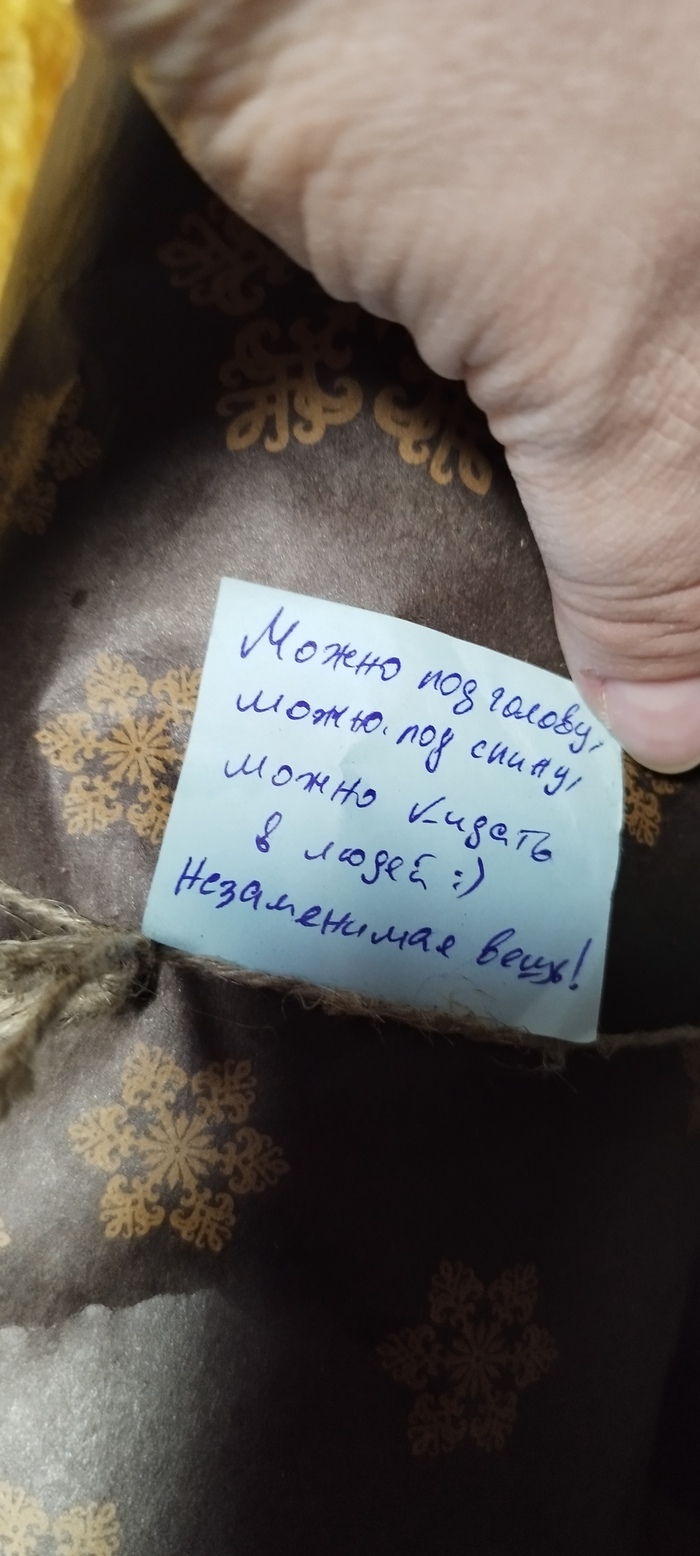 Можно под голову,
можно под спину,
можно кидать
в людей :)
Незаменимая вещь!